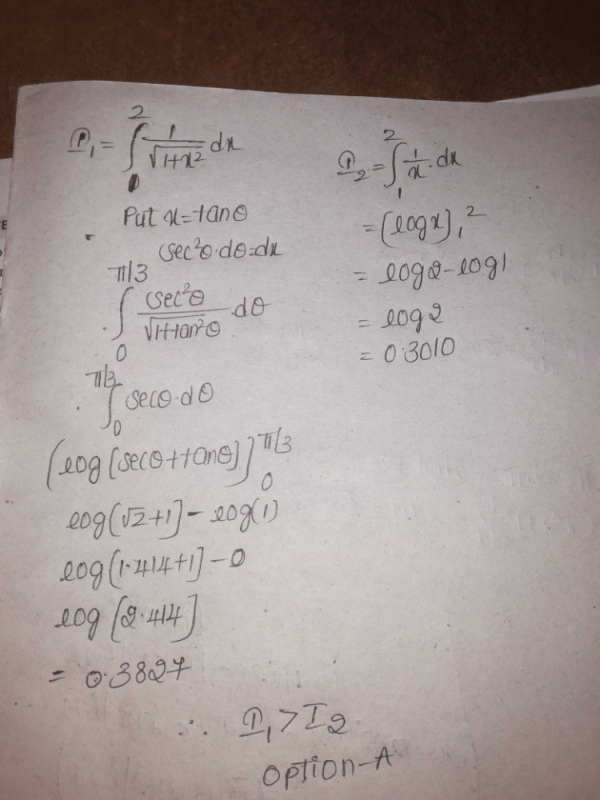 I₁ = ∫₀² 1/√(1+x²) dx
Put x = tanθ
sec²θ·dθ = dx
∫₀^(π/3) sec²θ/√(1+tan²θ) dθ
∫₀^(π/3) secθ·dθ
(log[secθ+tanθ])₀^(π/3)
log(√2+1] - log(1)
log(1.414+1] - 0
log[2.414]
= 0.3827
I₂ = ∫₁² 1/x · dx
= (log x)₁²
= log2 - log1
= log2
= 0.3010
∴ I₁ > I₂
Option-A